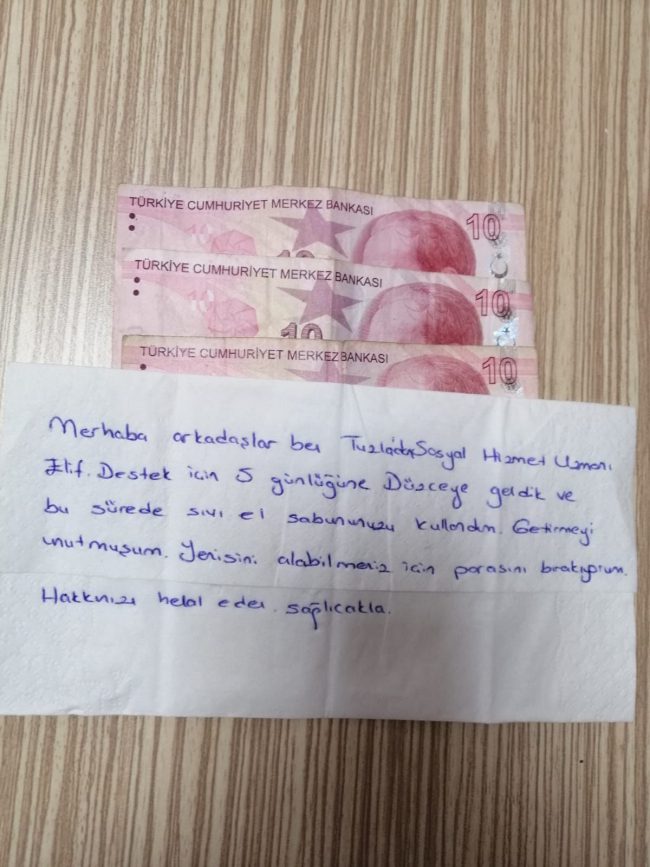 TÜRKİYE CUMHURİYET MERKEZ BANKASI
10
10
TÜRKİYE CUMHURİYET MERKEZ BANKASI
10
10
TÜRKİYE CUMHURİYET MERKEZ BANKASI
10
Merhaba arkadaşlar ben Tuzladan Sosyal Hizmet Uzmanı
Elif. Destek için 5 günlüğüne Düzceye geldik ve
bu sürede sıvı el sabununuzu kullandım. Getirmeyi
unutmuşum. Yenisini alabilmeniz için parasını bırakıyorum.
Hakkınızı helal eden. sağlıcakla.